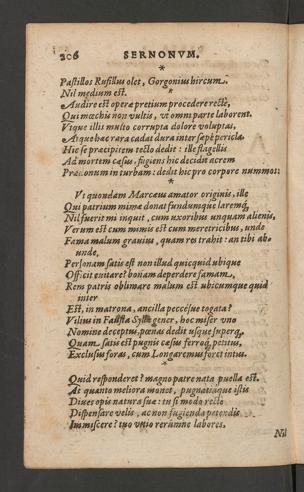 206 SERNONVM.
*
Pastillos Rufillus olet, Gorgonius hircum.
Nil medium est. *
Audire est operæ pretium procedere rectè,
Qui mœchis non vultis, vt omni parte laborent.
Vtque illis multo corrupta dolore voluptas,
Atque hæc rara cadat dura inter sæpè pericla.
Hic se præcipitem tecto dedit: ille flagellis
Ad mortem cæsus, fugiens hic decidit acrem
Prædonum in turbam: dedit hic pro corpore nummos:
*
Vt quondam Marcæus amator originis, ille
Qui patrium mimæ donat fundumque laremq́,
Nil fuerit mi inquit, cum uxoribus unquam alienis,
Verum est cum mimis est cum meretricibus, unde
Fama malum grauius, quam res trahit: an tibi ab-
unde,
Personam satis est non illud quicquid ubique
Officit euitare? bonam deperdere famam,
Rem patris oblimare malum est ubicumque quid
inter
Est, in matrona, ancilla peccesue togata?
Villius in Fausta Syllæ gener, hoc miser vno
Nomine deceptus, pœnas dedit usque superq́,
Quam satis est pugnis cæsus ferroq́, petitus,
Exclusus foras, cum Longarenus foret intus.
*
Quid responderet? magno patre nata puella est.
At quanto meliora monet, pugnatiaque istis
Diues opis natura suæ: tu si modo recte
Dispensare velis, ac non fugienda petendis
Immiscere? tuo vitio rerumne labores,
Nil